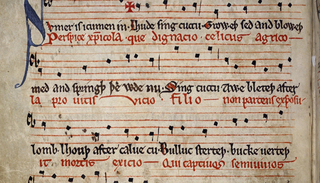 Sumer is icumen in· Lhude sing cucu· Groweþ sed and bloweþ
Perspice xpicola· que dignacio celicus agrico
med and springþ þe wde nu· Sing cucu Awe bleteþ after
la pro uitis vicio filio non parcens exposu
lomb lhouþ after calue cu· Bulluc sterteþ· bucke uerteþ
it mortis exicio Qui captiuos semiuiuos